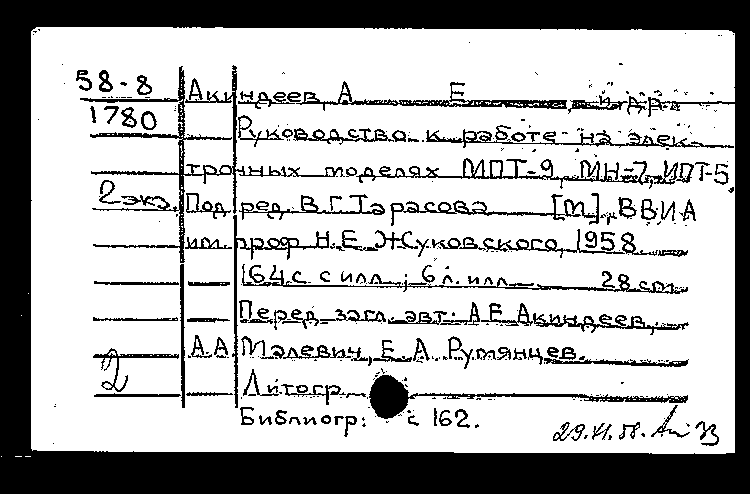 58-8 Акиндеев, А Е и др.
1780 Руководство к работе на элек-
тронных моделях МПТ-9, МН-7, ИПТ-5
2 экз. Под ред. В.Г. Тарасова [М], ВВИА
им проф Н.Е. Жуковского, 1958.
164 с. с илл.; 6 л. илл. 28 cm.
Перед загл. авт: А Е Акиндеев,
А.А. Малевич, Е. А. Румянцев.
2 Литогр.
Библиогр: с 162.